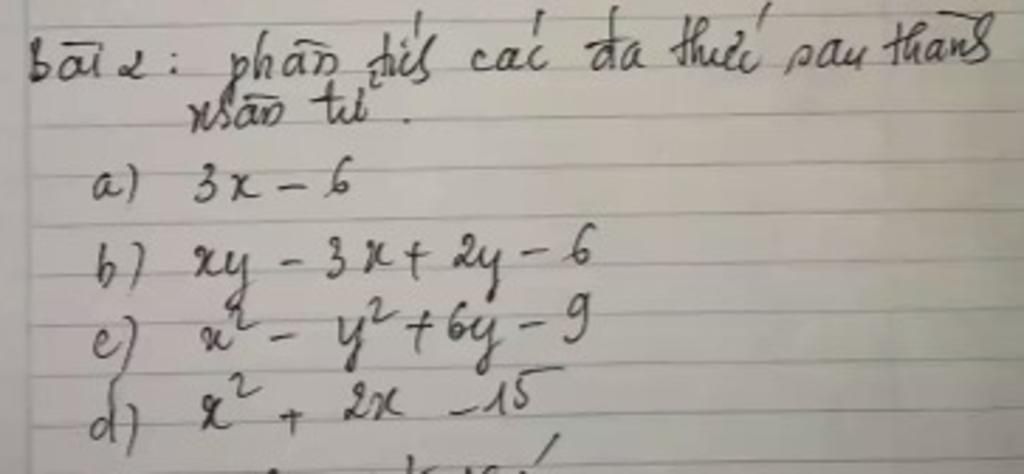 bài 2: phân tích các đa thức sau thành
nhân tử.
a) 3x - 6
b) xy - 3x + 2y - 6
c) x² - y² + 6y - 9
d) x² + 2x - 15